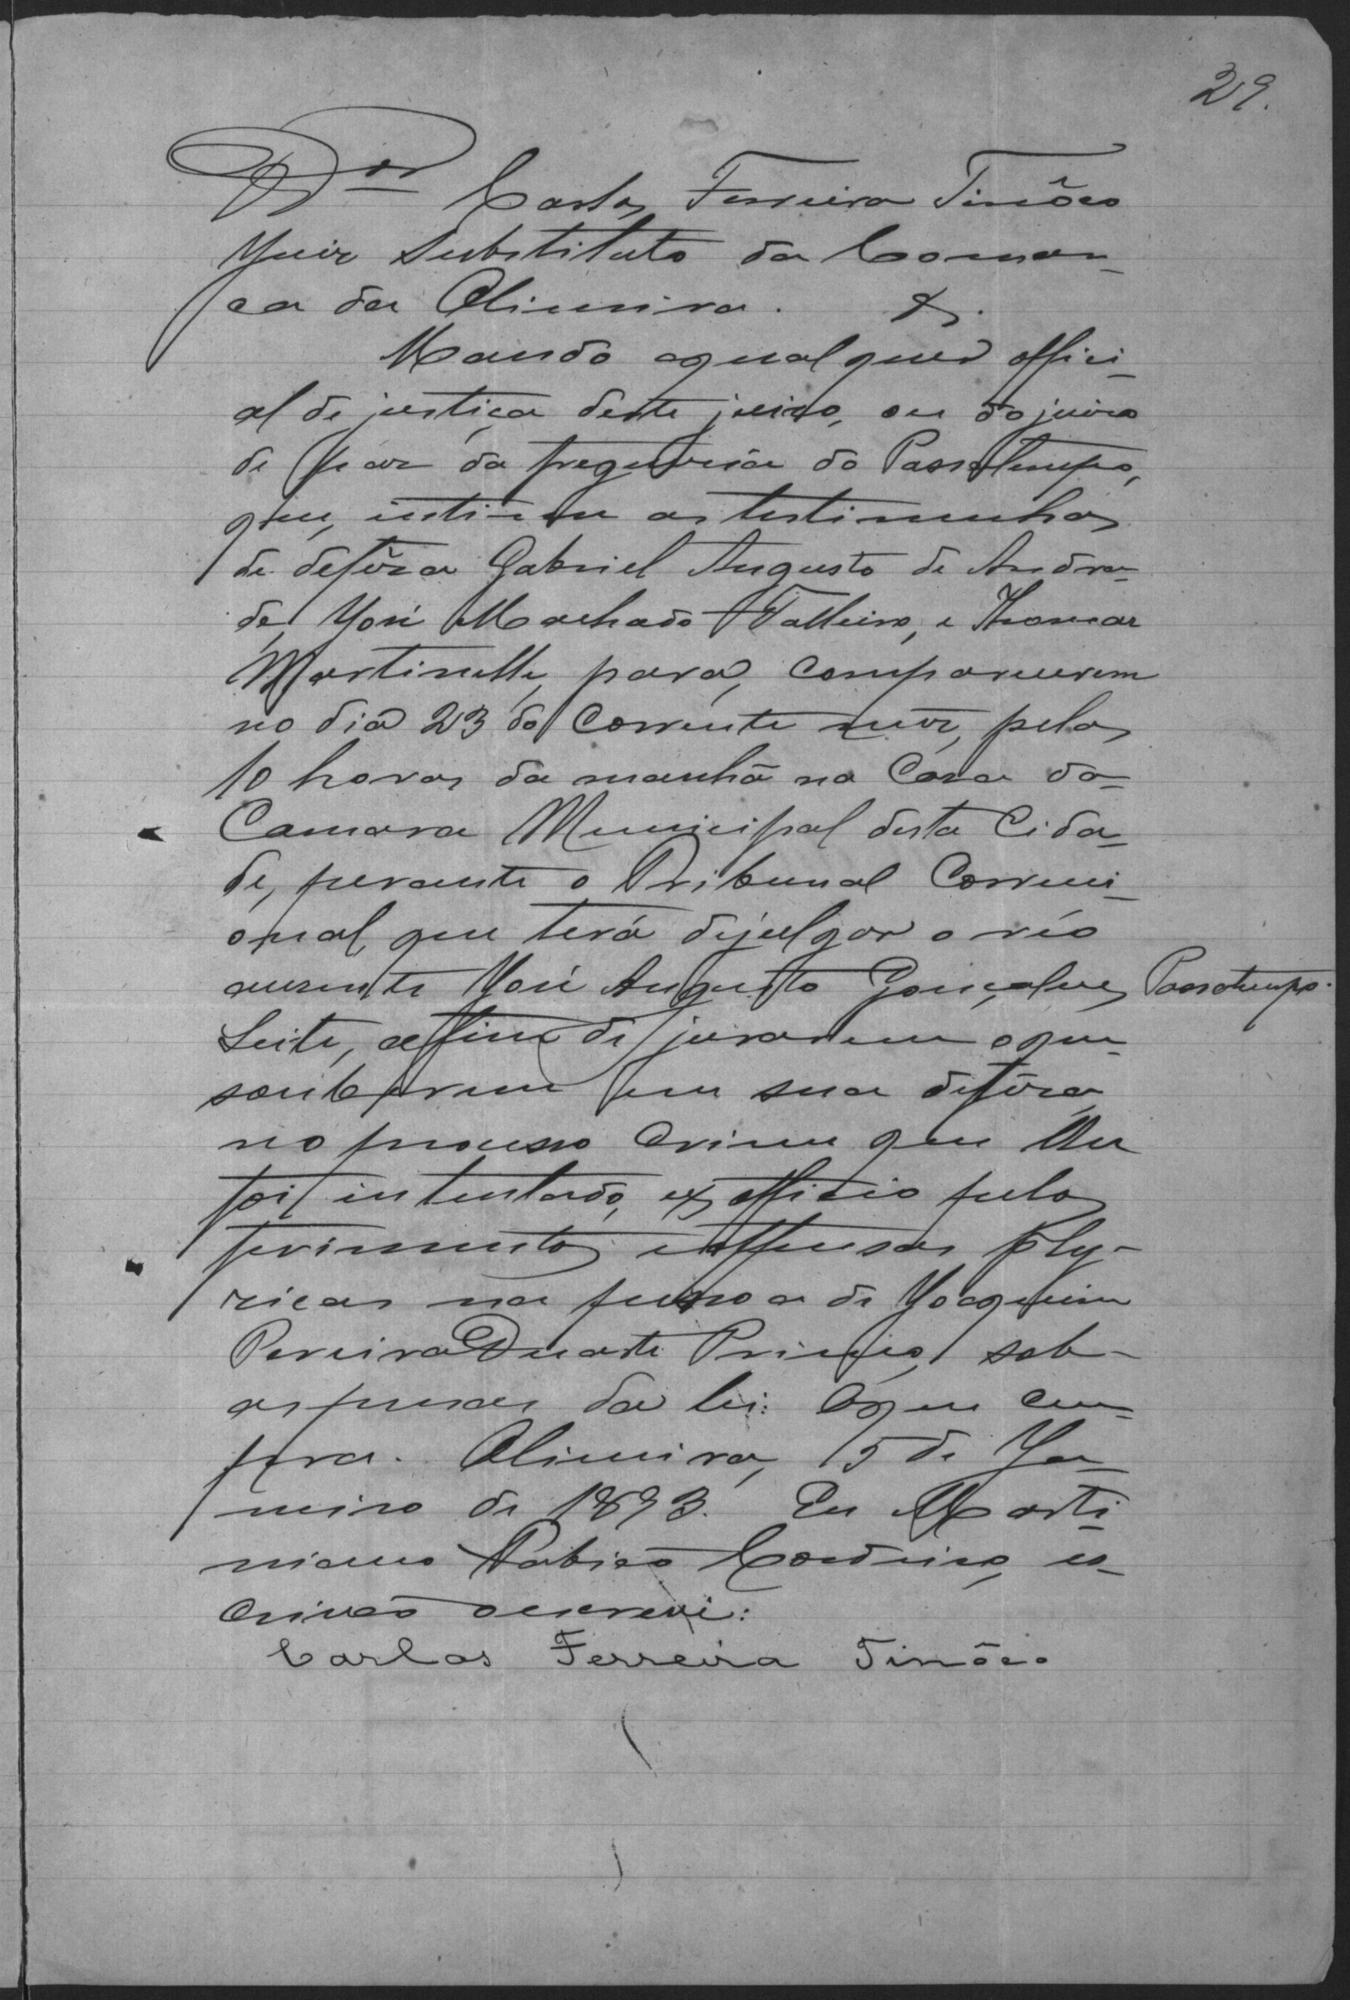 29.
Dor Carlos Ferreira Tinôco
Juiz Substituto da Comar-
ca da Oliveira. &.
Mando aqualquer offici-
al de justiça deste juizo, ou do juizo
de paz da freguezia do Passatempo,
que, intime as testimunhas
de defêza Gabriel Augusto de Andra-
de, José Machado Falleiro, e Thomaz
Martinelle, para, comparecerem
no dia 23 do corrente mez, pelas
10 horas da manhã na Casa da
Camara Municipal desta Cida-
de, perante o Tribunal Correci-
onal, que terá dejulgar o réo
auzente José Augusto Gonçalves Passatempo.
Leite, affim de jurarem oque
souberem em sua defêza
no processo crime que lhe
foi intentado, ex officio pelos
ferimentos e offensas phy-
zicas na pessoa de Joaquim
Pereira Duarte Primo, sob
as penas da lei: O que cum-
pra. Oliveira, 15 de Ja-
neiro de 1893. Eu Marti-
niano Cordeiro, es-
crivão oescrevi:
Carlos Ferreira Tinôco